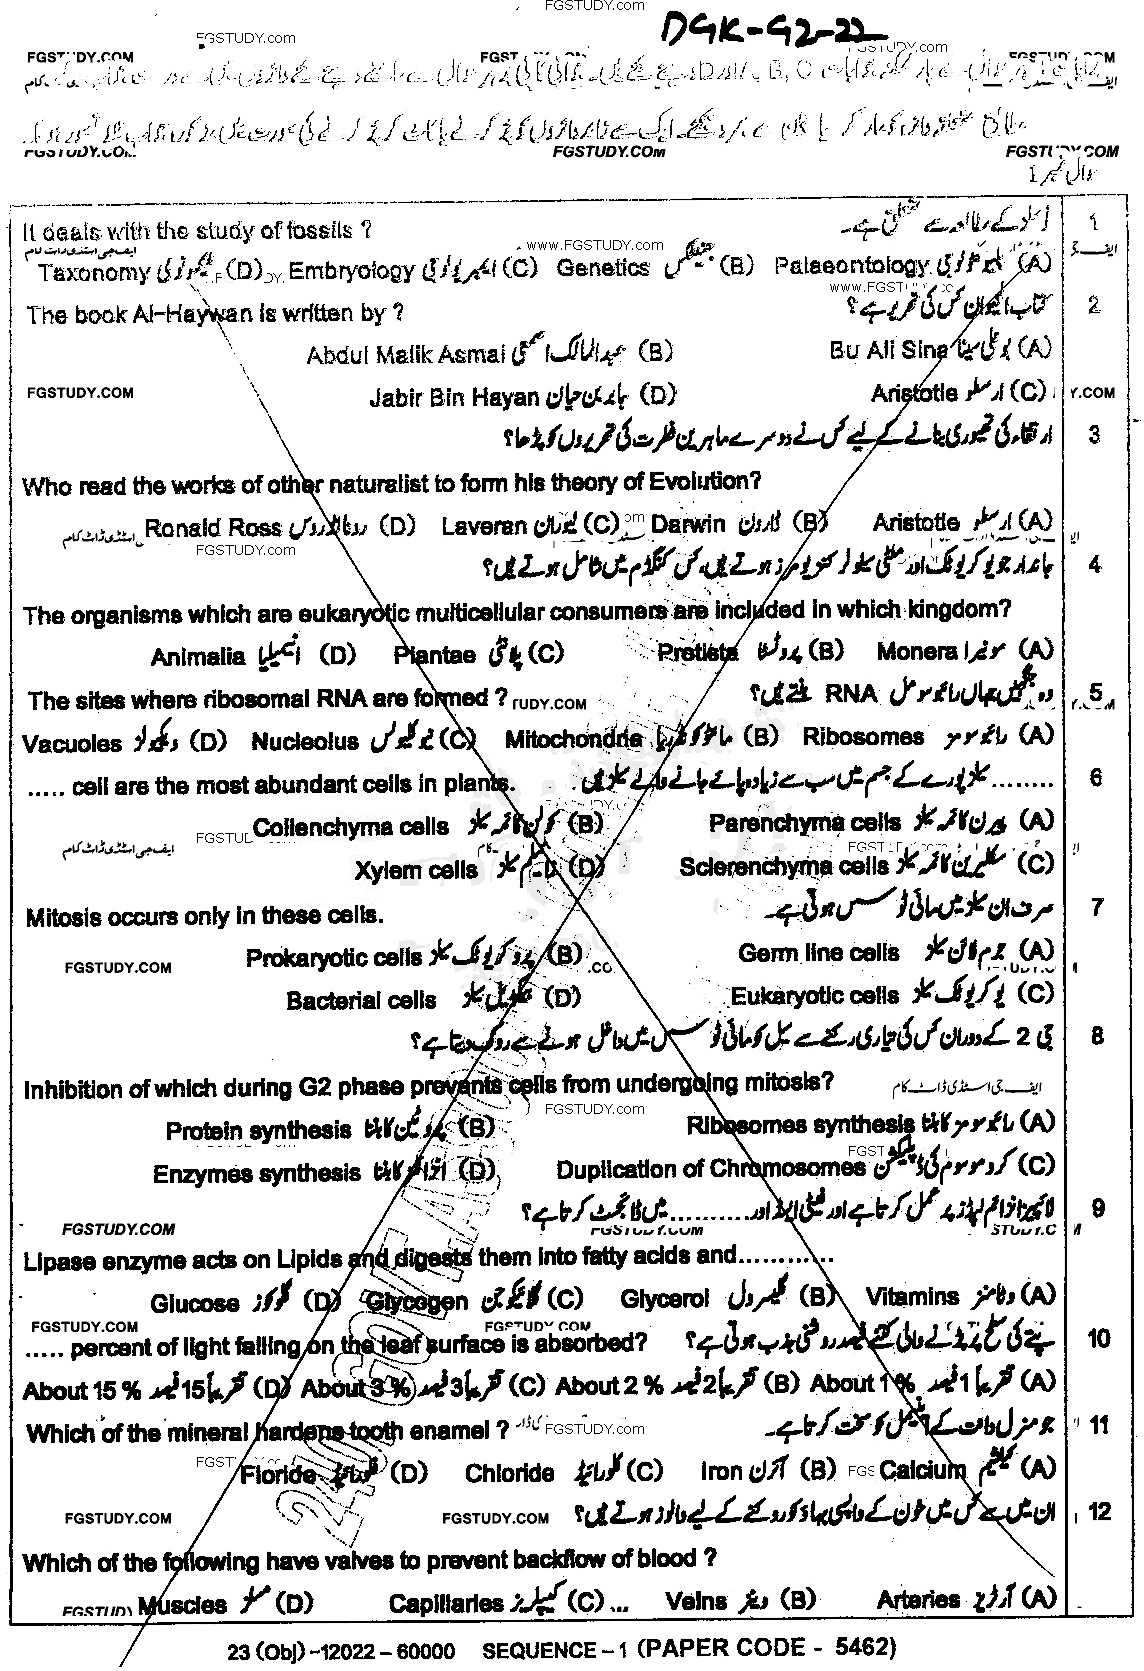 FGSTUDY.COM
DGK-G2-22
FGSTUDY.com
FGSTUDY.com
FGSTUDY.COM
FGSTUDY.COM
FGSTUDY.COM
FGSTUDY.COM
سوال نمبر 1
It deals with the study of fossils ? فوسلز کے مطالعہ سے متعلق ہے۔ 1
www.FGSTUDY.com
Taxonomy (D) Embryology ایمبریولوجی (C) Genetics جینیٹکس (B) Palaeontology (A)
www.FGSTUDY.c
The book Al-Haywan is written by ? کتاب الحیوان کس کی تحریر ہے؟ 2
Abdul Malik Asmai عبدالمالک اصمعی (B) Bu Ali Sina بو علی سینا (A)
FGSTUDY.COM Jabir Bin Hayan جابر بن حیان (D) Aristotle ارسطو (C)
ارتقاء کی تھیوری بنانے کے لیے کس نے دوسرے ماہرین فطرت کی تحریروں کو پڑھا؟ 3
Who read the works of other naturalist to form his theory of Evolution?
Ronald Ross رونالڈ روس (D) Laveran لیوران (C) Darwin ڈارون (B) Aristotle ارسطو (A)
FGSTUDY.com
جاندار جو یوکریوٹک اور ملٹی سیلولر کنزیومرز ہوتے ہیں، کس کنگڈم میں شامل ہوتے ہیں؟ 4
The organisms which are eukaryotic multicellular consumers are included in which kingdom?
Animalia اینیمیلیا (D) Plantae پلانٹی (C) Protista پروٹسٹا (B) Monera مونیرا (A)
The sites where ribosomal RNA are formed ? وہ جگہیں جہاں رائبوسومل RNA بنتے ہیں؟ 5
Vacuoles ویکیولز (D) Nucleolus نیوکلیولس (C) Mitochondria مائٹوکونڈریا (B) Ribosomes رائبوسومز (A)
..... cell are the most abundant cells in plants. ........ سیلز پودے کے جسم میں سب سے زیادہ پائے جانے والے سیلز ہیں۔ 6
Collenchyma cells کولن کائمہ سیلز (B) Parenchyma cells پیرن کائمہ سیلز (A)
Xylem cells زائیلم سیلز (D) Sclerenchyma cells سکلیرن کائمہ سیلز (C)
Mitosis occurs only in these cells. صرف ان سیلز میں مائی ٹوسس ہوتی ہے۔ 7
Prokaryotic cells پروکریوٹک سیلز (B) Germ line cells جرم لائن سیلز (A)
FGSTUDY.COM
Bacterial cells بیکٹیریل سیلز (D) Eukaryotic cells یوکریوٹک سیلز (C)
جی 2 کے دوران کس کی تیاری رکنے سے سیل کو مائی ٹوسس میں داخل ہونے سے روک دیتا ہے؟ 8
Inhibition of which during G2 phase prevents cells from undergoing mitosis? ایف جی اسٹڈی ڈاٹ کام
FGSTUDY.com
Protein synthesis پروٹین کا بننا (B) Ribosomes synthesis رائبوسومز کا بننا (A)
Enzymes synthesis انزائمز کا بننا (D) Duplication of Chromosomes کروموسوم کی ڈپلیکیشن (C)
لائپیز انزائم لپڈز پر عمل کرتا ہے اور فیٹی ایسڈ اور........... میں ڈائجسٹ کرتا ہے؟ 9
FGSTUDY.COM FGSTUDY.COM
Lipase enzyme acts on Lipids and digests them into fatty acids and............
Glucose گلوکوز (D) Glycogen گلائیکوجن (C) Glycerol گلیسرول (B) Vitamins وٹامنز (A)
FGSTUDY.COM FGSTUDY.COM
..... percent of light falling on the leaf surface is absorbed? پتے کی سطح پر پڑنے والی کتنے فیصد روشنی جذب ہوتی ہے؟ 10
About 15 % تقریباً 15 فیصد (D) About 3 % تقریباً 3 فیصد (C) About 2 % تقریباً 2 فیصد (B) About 1 % تقریباً 1 فیصد (A)
Which of the mineral hardens tooth enamel ? FGSTUDY.com جو منرل دانت کے اینیمل کو سخت کرتا ہے۔ 11
Floride فلورائیڈ (D) Chloride کلورائیڈ (C) Iron آئرن (B) Calcium کیلشیم (A)
FGSTUDY.COM FGSTUDY.COM ان میں سے کس میں خون کے واپسی بہاؤ کو روکنے کے لیے والوز ہوتے ہیں؟ 12
Which of the following have valves to prevent backflow of blood ?
Muscles مسلز (D) Capillaries کیپلریز (C) ... Veins وینز (B) Arteries آرٹریز (A)
23 (Obj) -12022 - 60000 SEQUENCE - 1 (PAPER CODE - 5462)